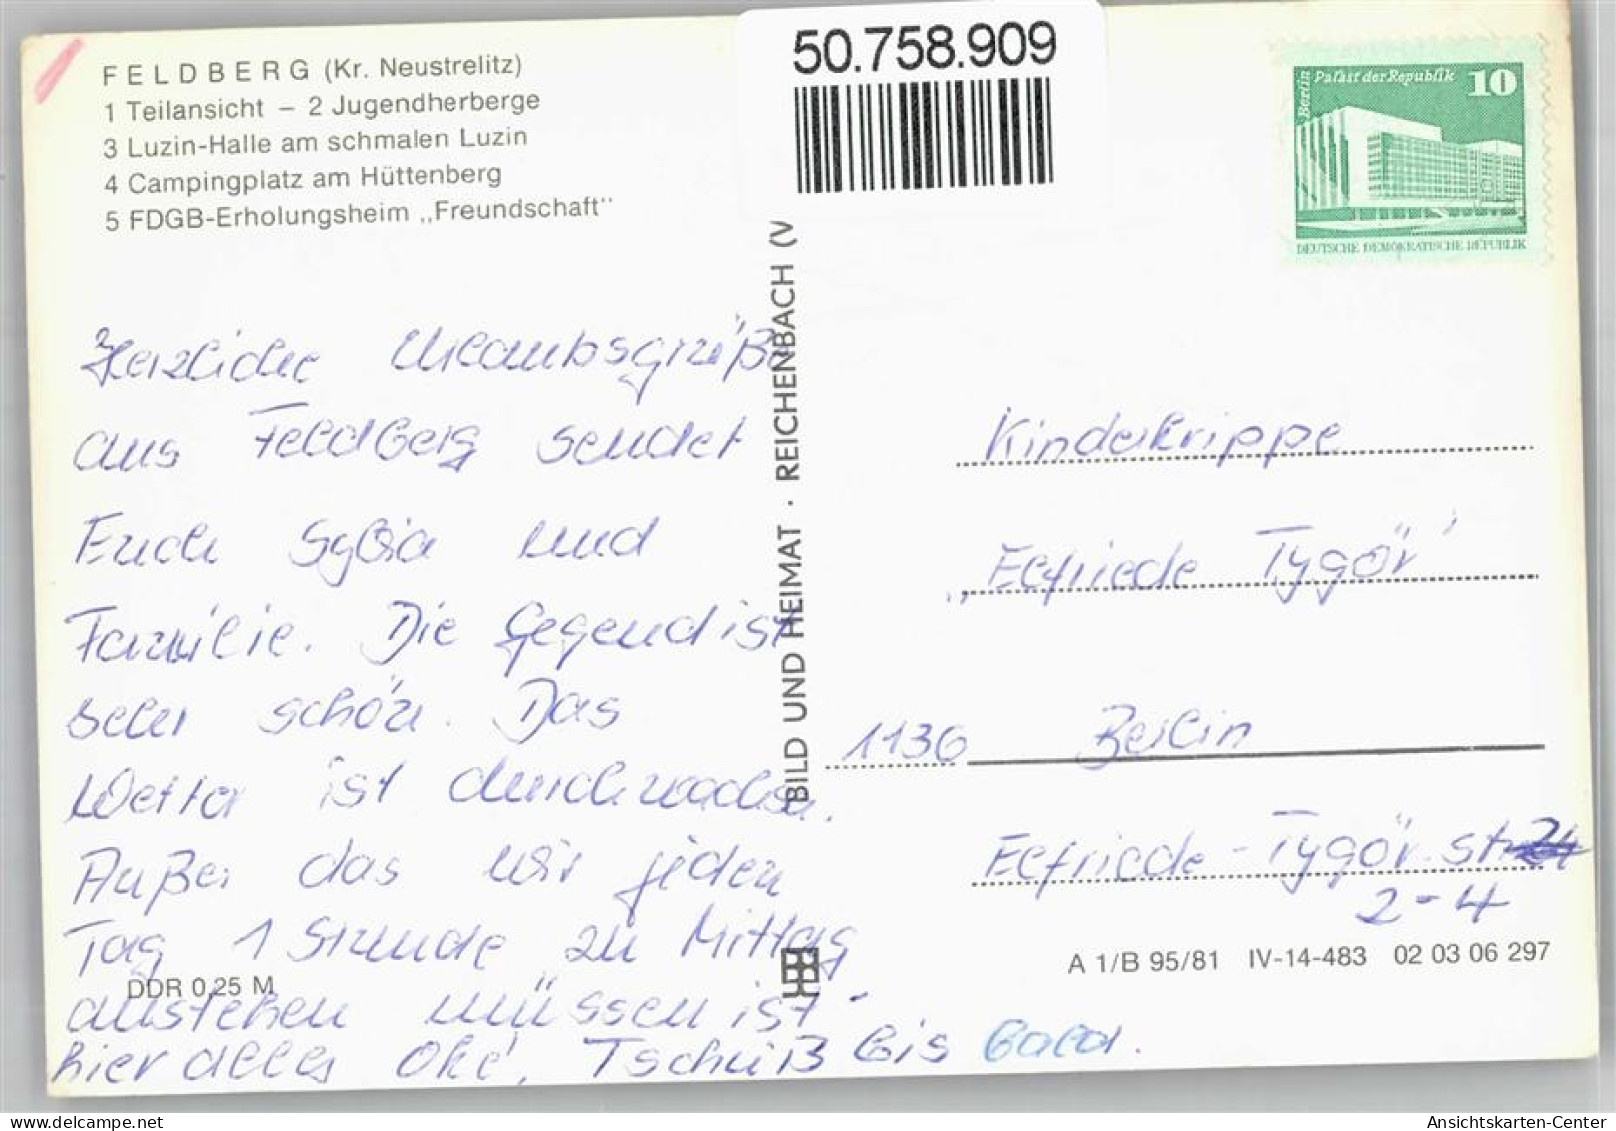 FELDBERG (Kr. Neustrelitz)
1 Teilansicht – 2 Jugendherberge
3 Luzin-Halle am schmalen Luzin
4 Campingplatz am Hüttenberg
5 FDGB-Erholungsheim „Freundschaft"
50.758.909
Berlin Palast der Republik 10
DEUTSCHE DEMOKRATISCHE REPUBLIK
Herzliche Urlaubsgrüße
aus Feldberg sendet
Euch Sylvia und
Familie. Die Gegend ist
sehr schön. Das
Wetter ist durchwachsen.
Außer das wir jeden
Tag 1 Stunde zu Mittag
anstehen müssen ist
hier alles Oké, Tschüß bis bald.
DDR 0,25 M
BILD UND HEIMAT · REICHENBACH (V
Kinderkrippe
„Elfriede Tygör"
1136 Berlin
Elfriede-Tygör-str. 24
2-4
A 1/B 95/81 IV-14-483 02 03 06 297
www.delcampe.net
Ansichtskarten-Center